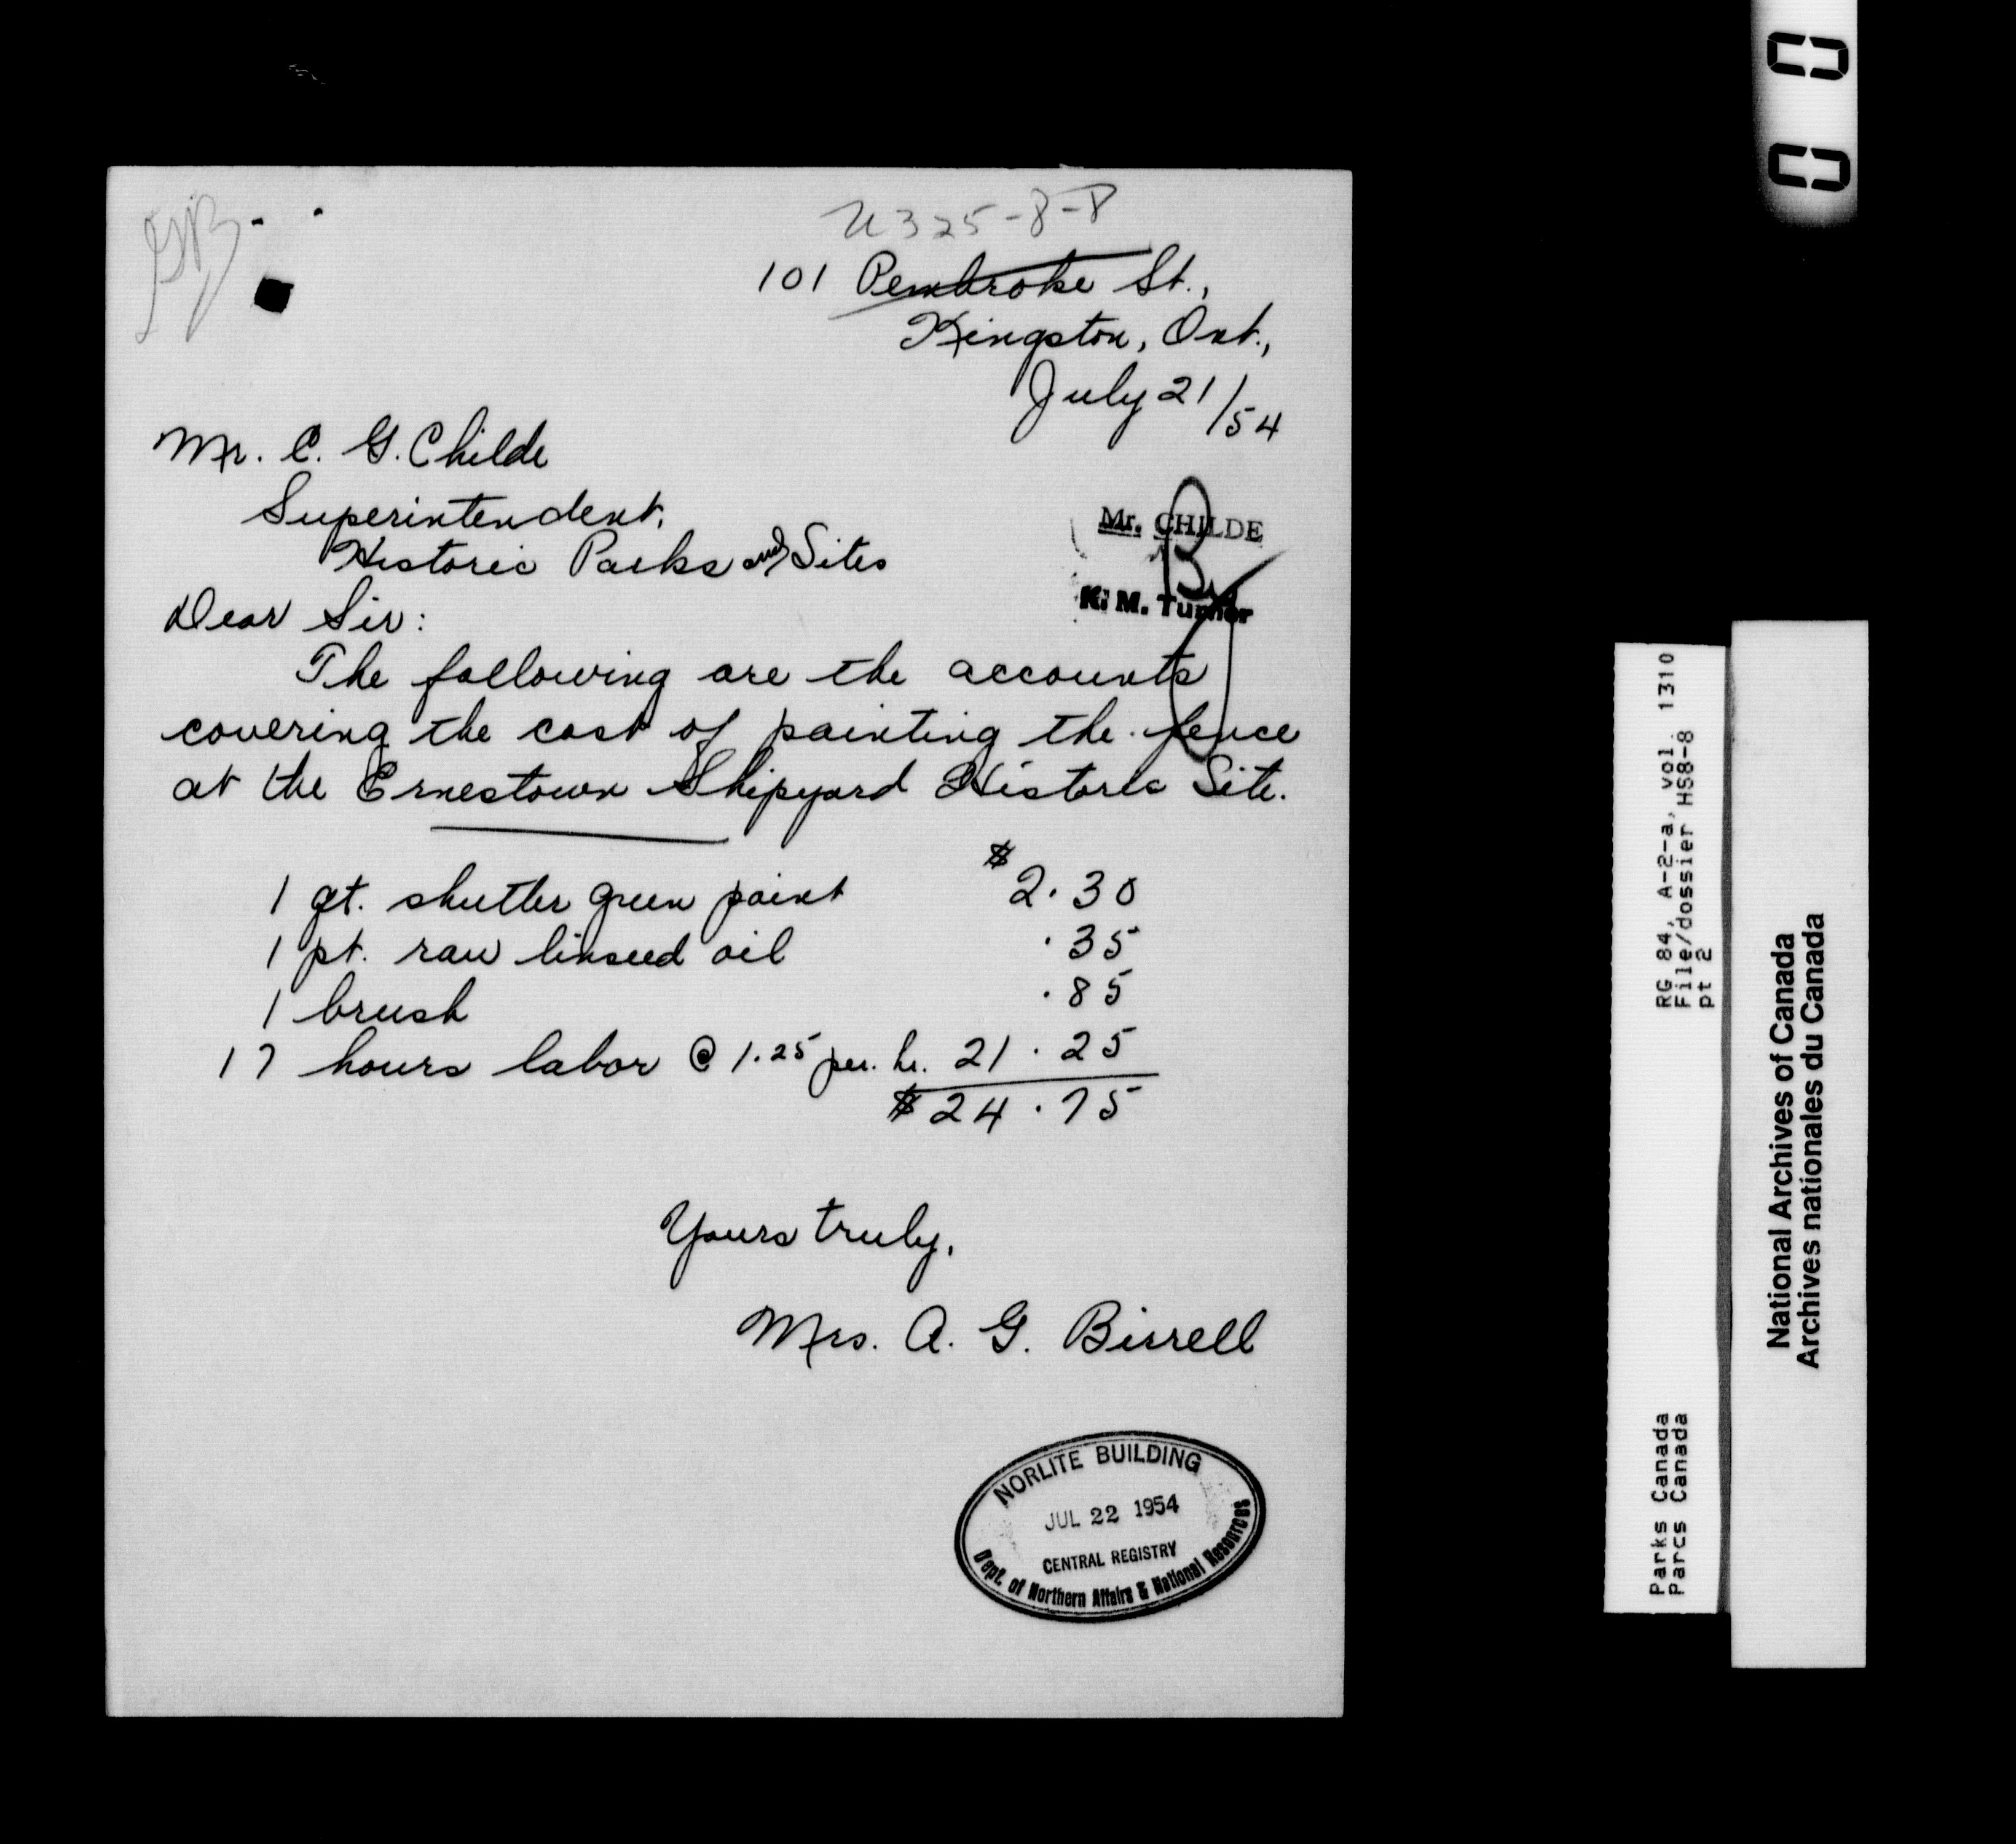 U325-8-8
101 Pembroke St.,
Kingston, Ont.,
July 21/54
Mr. C. G. Childe
Superintendent,
Historic Parks and Sites
Mr. CHILDE
K. M. Turner
Dear Sir:
The following are the accounts
covering the cost of painting the fence
at the Ernestown Shipyard Historic Site.
1 qt. shutter green paint $2.30
1 pt. raw linseed oil .35
1 brush .85
17 hours labor @ 1.25 per. hr. 21.25
$24.75
Yours truly,
Mrs. A. G. Birrell
NORLITE BUILDING
JUL 22 1954
CENTRAL REGISTRY
Dept. of Northern Affairs & National Resources
RG 84, A-2-a, vol. 1310
File/dossier HS8-8
pt 2
Parks Canada
Parcs Canada
National Archives of Canada
Archives nationales du Canada